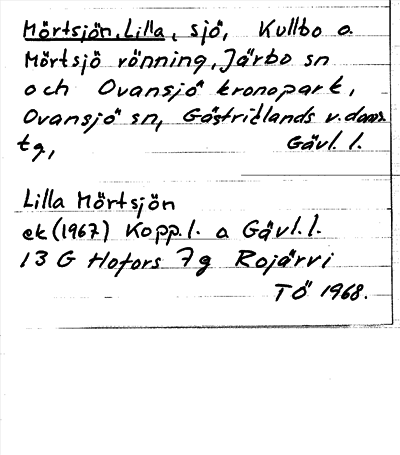 Mörtsjön, Lilla, sjö, Kullbo o.
Mörtsjö rönning, Järbo sn
och Ovansjö kronopark,
Ovansjö sn, Gästriklands v. doms
tg, Gävl. l.
Lilla Mörtsjön
ek (1967) Kopp. l. o Gävl. l.
13 G Hofors 7g Rojärvi
TÖ 1968.